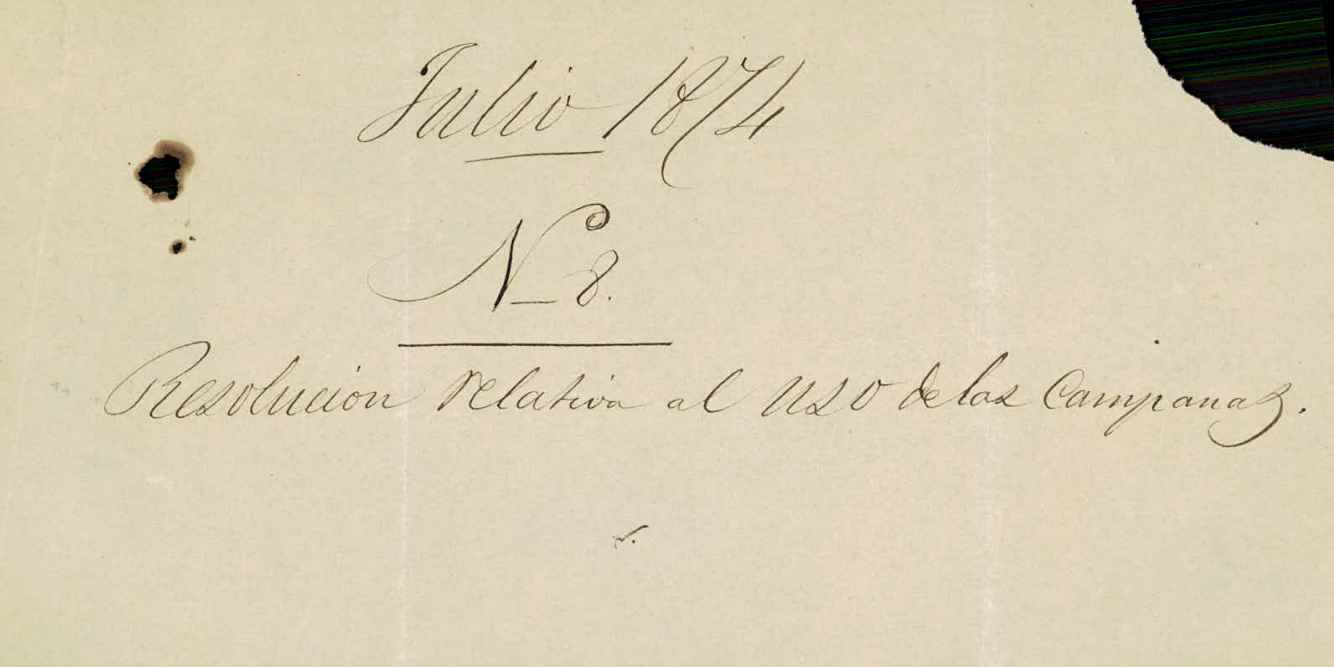 Julio 1874
N_8.
Resolucion relativa al uso de las Campanas.